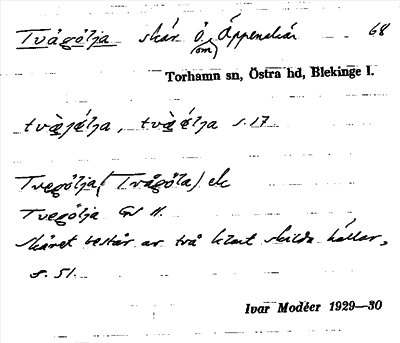 Tvågölja skär Ö om Äppenskär 68
Torhamn sn, Östra hd, Blekinge l.
tvàjǿlja, tvàǿlja s. 17
Tvegölja (Tvågöla) ek
Tvegölja GS II.
Skäret består av två klart skilda hällar,
s. 51.
Ivar Modéer 1929—30